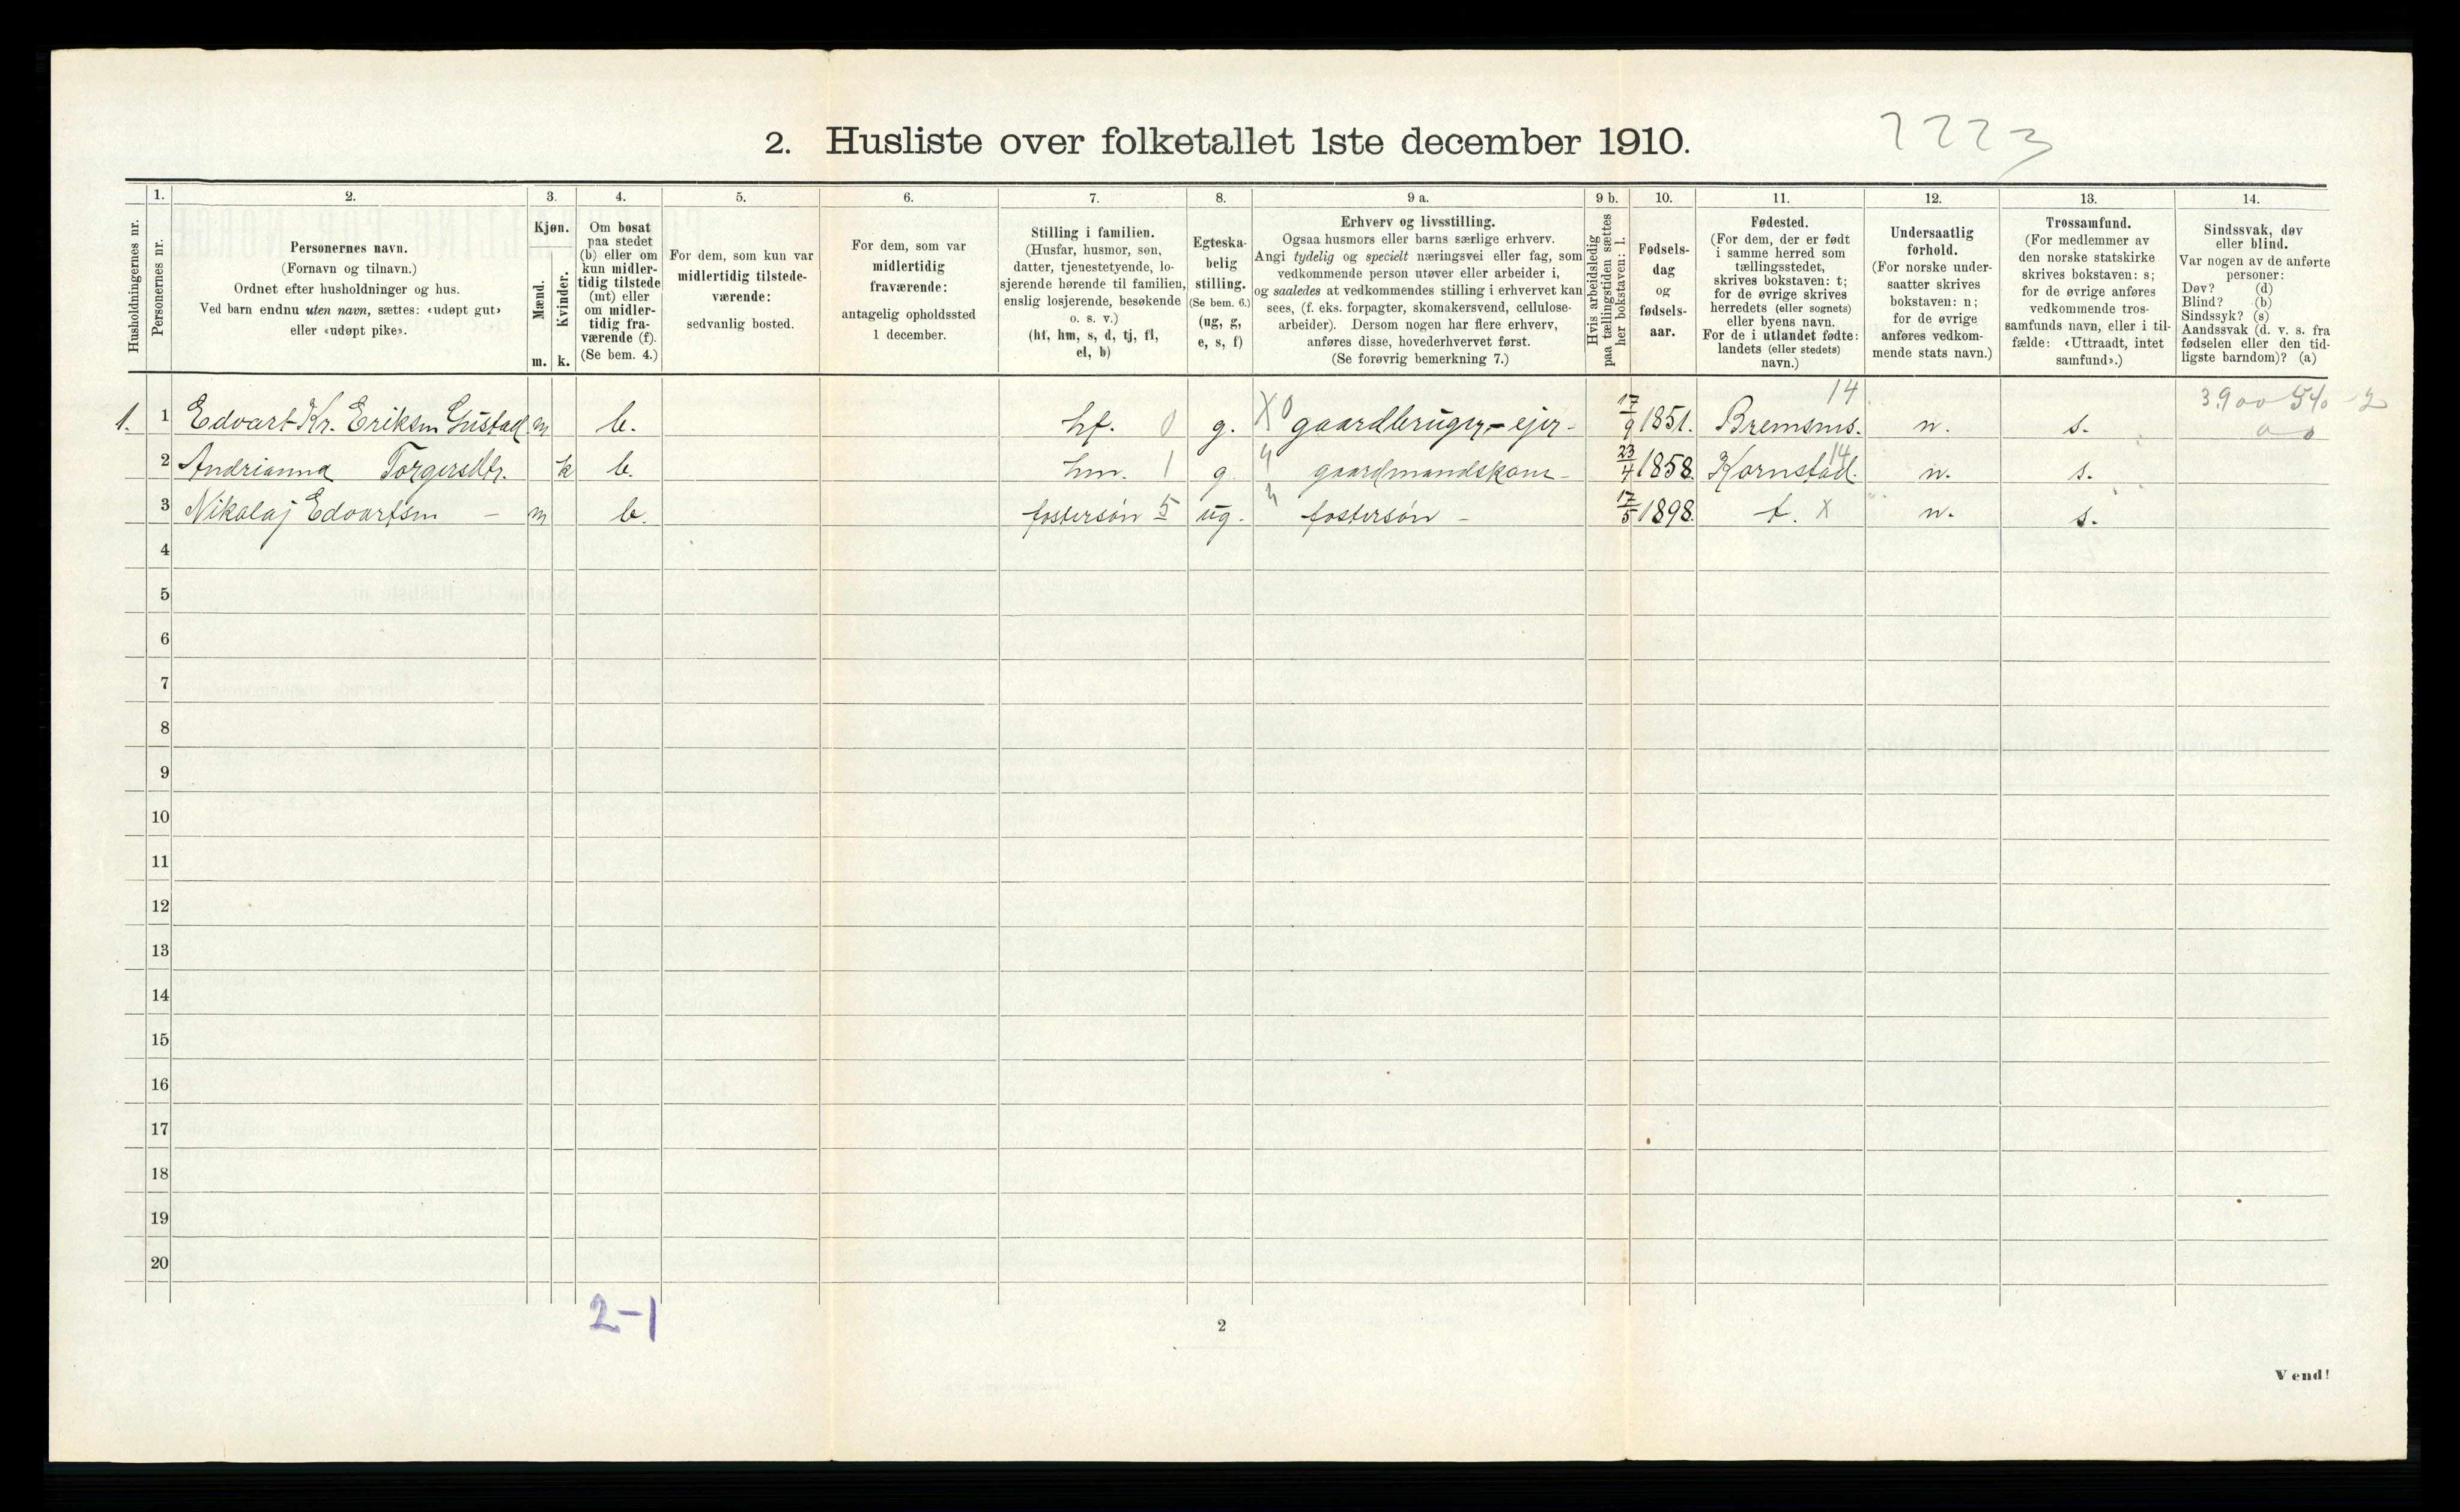 2. Husliste over folketallet 1ste december 1910.
2223
Husholdningernes nr.
1.
Personernes nr.
2.
Personernes navn.
(Fornavn og tilnavn.)
Ordnet efter husholdninger og hus.
Ved barn endnu uten navn, sættes: «udøpt gut»
eller «udøpt pike».
3.
Kjøn.
Mænd.
Kvinder.
m. k.
4.
Om bosat
paa stedet
(b) eller om
kun midler-
tidig tilstede
(mt) eller
om midler-
tidig fra-
værende (f).
(Se bem. 4.)
5.
For dem, som kun var
midlertidig tilstede-
værende:
sedvanlig bosted.
6.
For dem, som var
midlertidig
fraværende:
antagelig opholdssted
1 december.
7.
Stilling i familien.
(Husfar, husmor, søn,
datter, tjenestetyende, lo-
sjerende hørende til familien,
enslig losjerende, besøkende
o. s. v.)
(hf, hm, s, d, tj, fl,
el, b)
8.
Egteska-
belig
stilling.
(Se bem. 6.)
(ug, g,
e, s, f)
9 a.
Erhverv og livsstilling.
Ogsaa husmors eller barns særlige erhverv.
Angi tydelig og specielt næringsvei eller fag, som
vedkommende person utøver eller arbeider i,
og saaledes at vedkommendes stilling i erhvervet kan
sees, (f. eks. forpagter, skomakersvend, cellulose-
arbeider). Dersom nogen har flere erhverv,
anføres disse, hovederhvervet først.
(Se forøvrig bemerkning 7.)
9 b.
Hvis arbeidsledig
paa tællingstiden sættes
her bokstaven: l.
10.
Fødsels-
dag
og
fødsels-
aar.
11.
Fødested.
(For dem, der er født
i samme herred som
tællingsstedet,
skrives bokstaven: t;
for de øvrige skrives
herredets (eller sognets)
eller byens navn.
For de i utlandet fødte:
landets (eller stedets)
navn.)
12.
Undersaatlig
forhold.
(For norske under-
saatter skrives
bokstaven: n;
for de øvrige
anføres vedkom-
mende stats navn.)
13.
Trossamfund.
(For medlemmer av
den norske statskirke
skrives bokstaven: s;
for de øvrige anføres
vedkommende tros-
samfunds navn, eller i til-
fælde: «Uttraadt, intet
samfund».)
14.
Sindssvak, døv
eller blind.
Var nogen av de anførte
personer:
Døv? (d)
Blind? (b)
Sindssyk? (s)
Aandssvak (d. v. s. fra
fødselen eller den tid-
ligste barndom)? (a)
14 3900-540-2
1. 1 Edvart Kr. Eriksen Gustad m b. hf. 0 g. X0 gaardbruger-ejer- 17/9 1851. Bremsnes. n. s.
14
2 Andrianna Torgersdtr. k b. hm. 1 g. 4 gaardmandskone- 23/4 1858. Kornstad. n. s.
3 Nikolaj Edvartsen - m b. fostersøn 5 ug. 4 fostersøn - 17/5 1898. t. X n. s.
4
5
6
7
8
9
10
11
12
13
14
15
16
17
18
19
20
2-1
2
Vend!